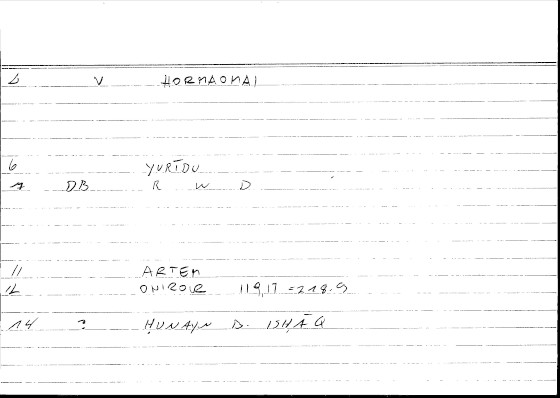 6 V HORMAOMAI
6 YURĪDU
7 DB R W D
11 ARTEM
12 ONIROCR 119,17 = 218.9
14 ? ḤUNAYN B. ISḤĀQ